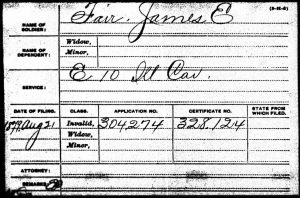 (3-216)
NAME OF SOLDIER: Fair, James E
NAME OF DEPENDENT: Widow,
Minor,
SERVICE: E 10 Ill Cav.
DATE OF FILING. CLASS. APPLICATION NO. CERTIFICATE NO. STATE FROM WHICH FILED.
1879 Aug 21 Invalid, 304274 328.124
Widow,
Minor,
ATTORNEY:
REMARKS: